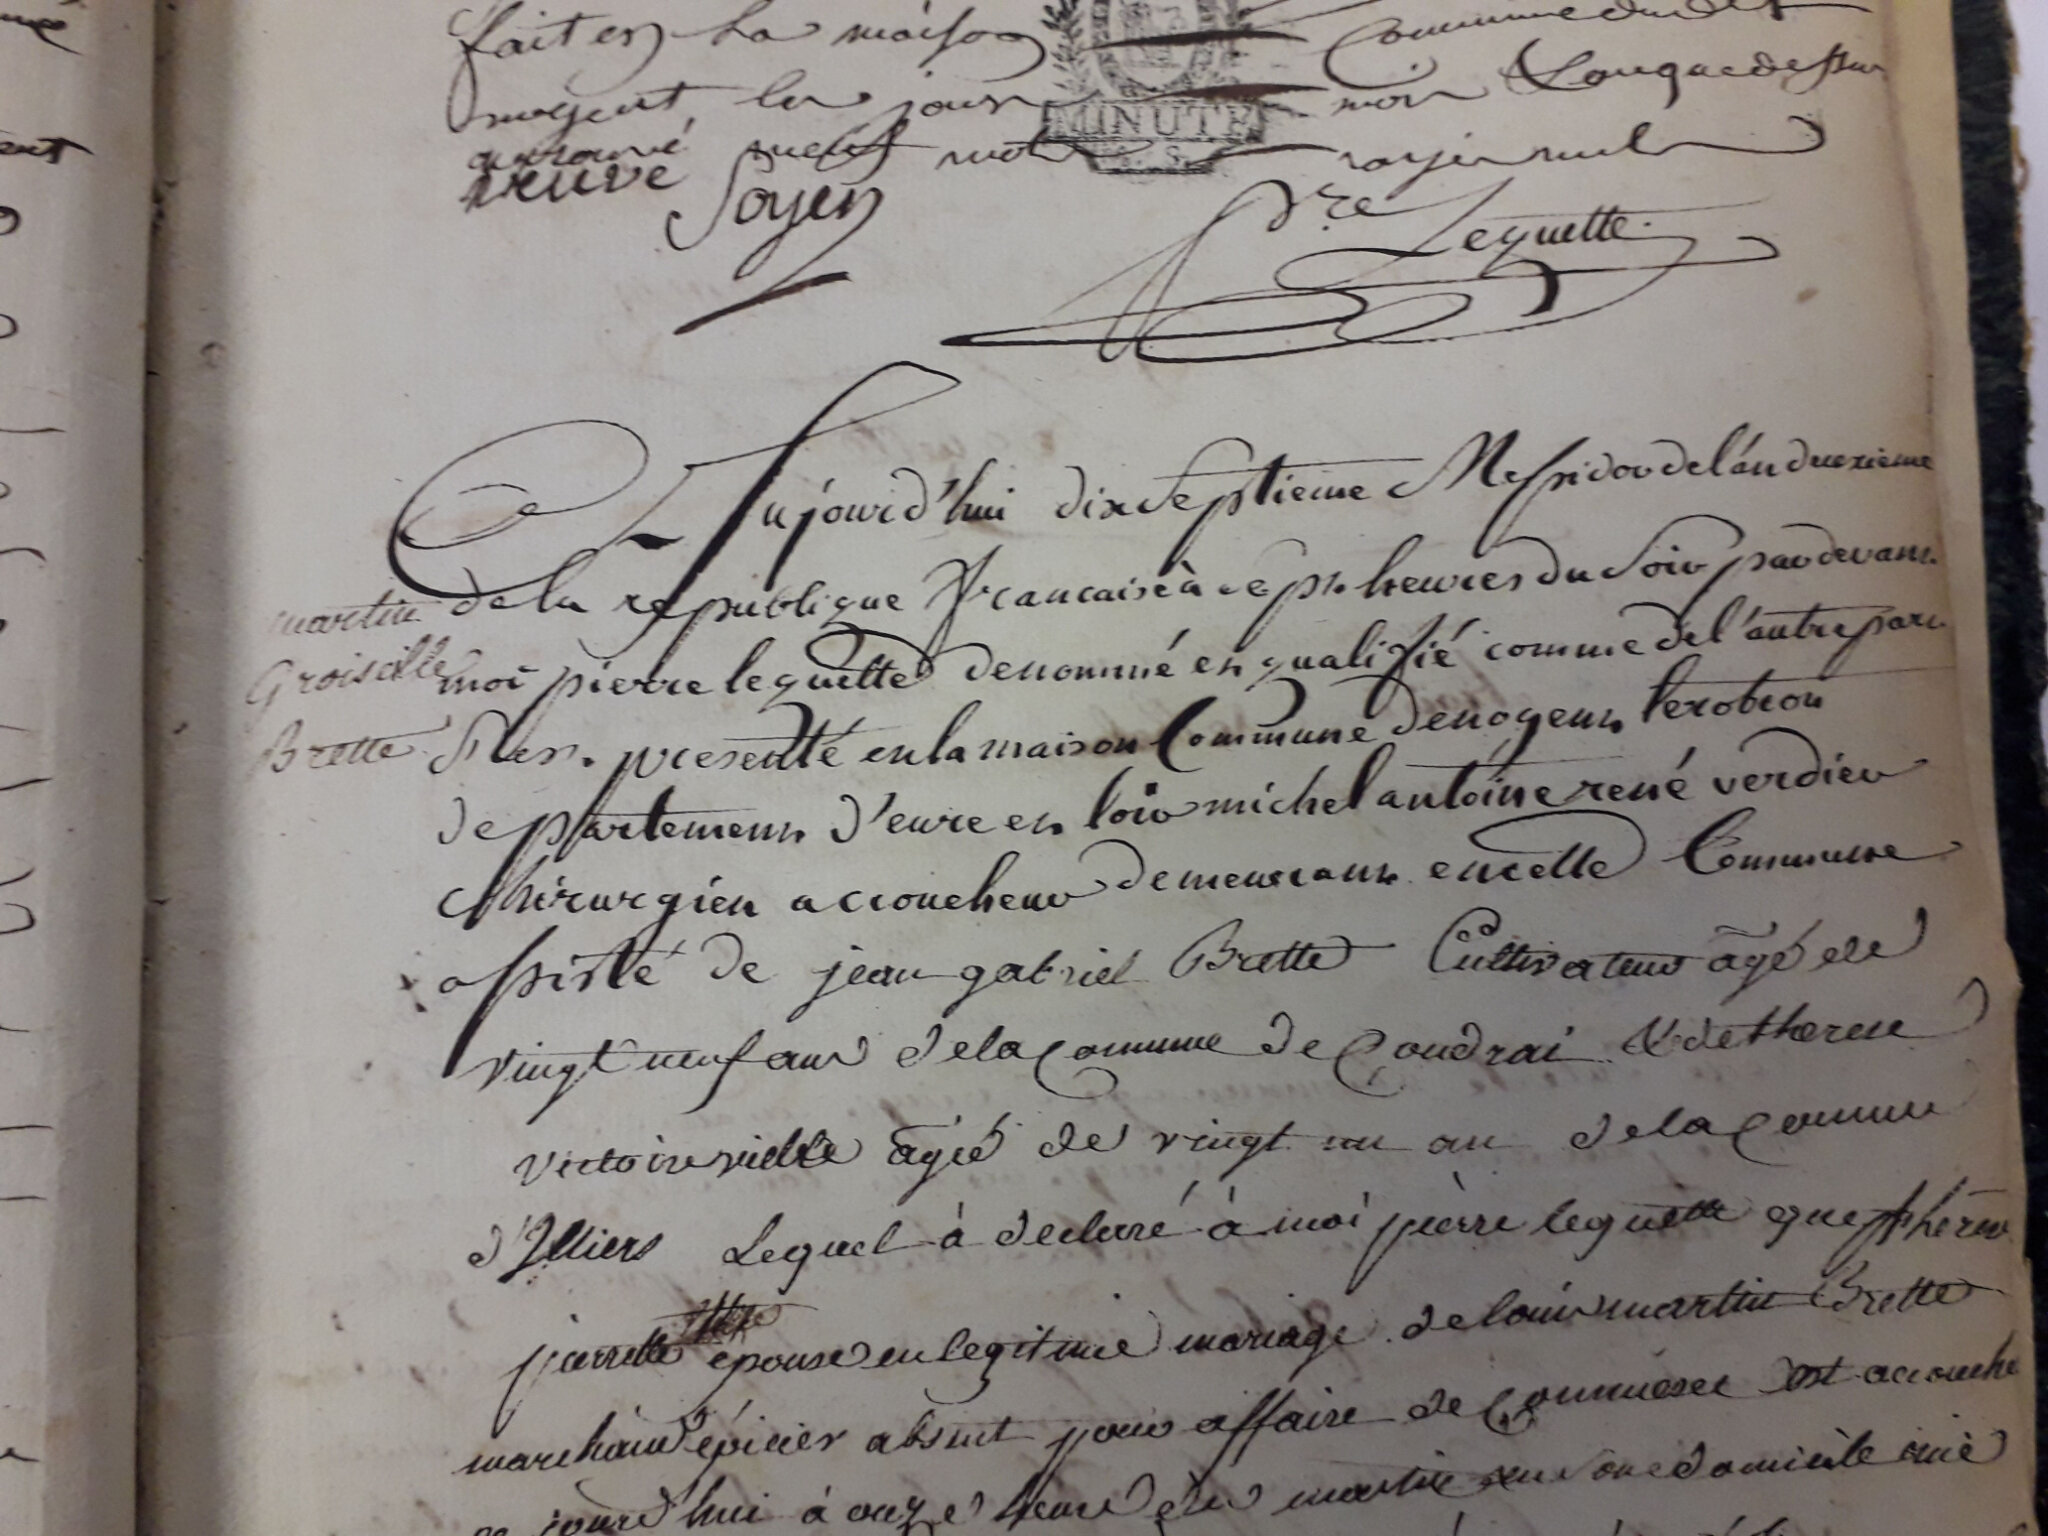 fait en la maison Commune dudit
nogent les jour mois Lanquedessus
aprouvé neuf mots rayés nuls
MINUTE
veuve Soyer
Pre Lequette
Aujourd'hui dixseptieme Messidor de l'an deuxieme
de la republique francaise à sept heures du Soir pardevant
martin
Groiseille
Brette
moi pierre lequette denommé et qualifié comme de l'autre part
s'est presenté en la maison Commune de nogent le rotrou
departement d'eure et loir michel antoine rené verdier
Chirurgien accoucheur demeurant en cette Commune
assisté de jean gabriel Brette Cultivateur agé de
vingt neuf ans de la Commune de Coudrai & de therese
victoire vielle agée de vingt un an de la Commune
d'Illiers Lequel à declaré à moi pierre lequette que
pierrette epouse en legitime mariage de louis martin Brette
marchand épicier absent pour affaire de Commerce est accouché
ce jourd'hui à onze heure du matin en son domicile